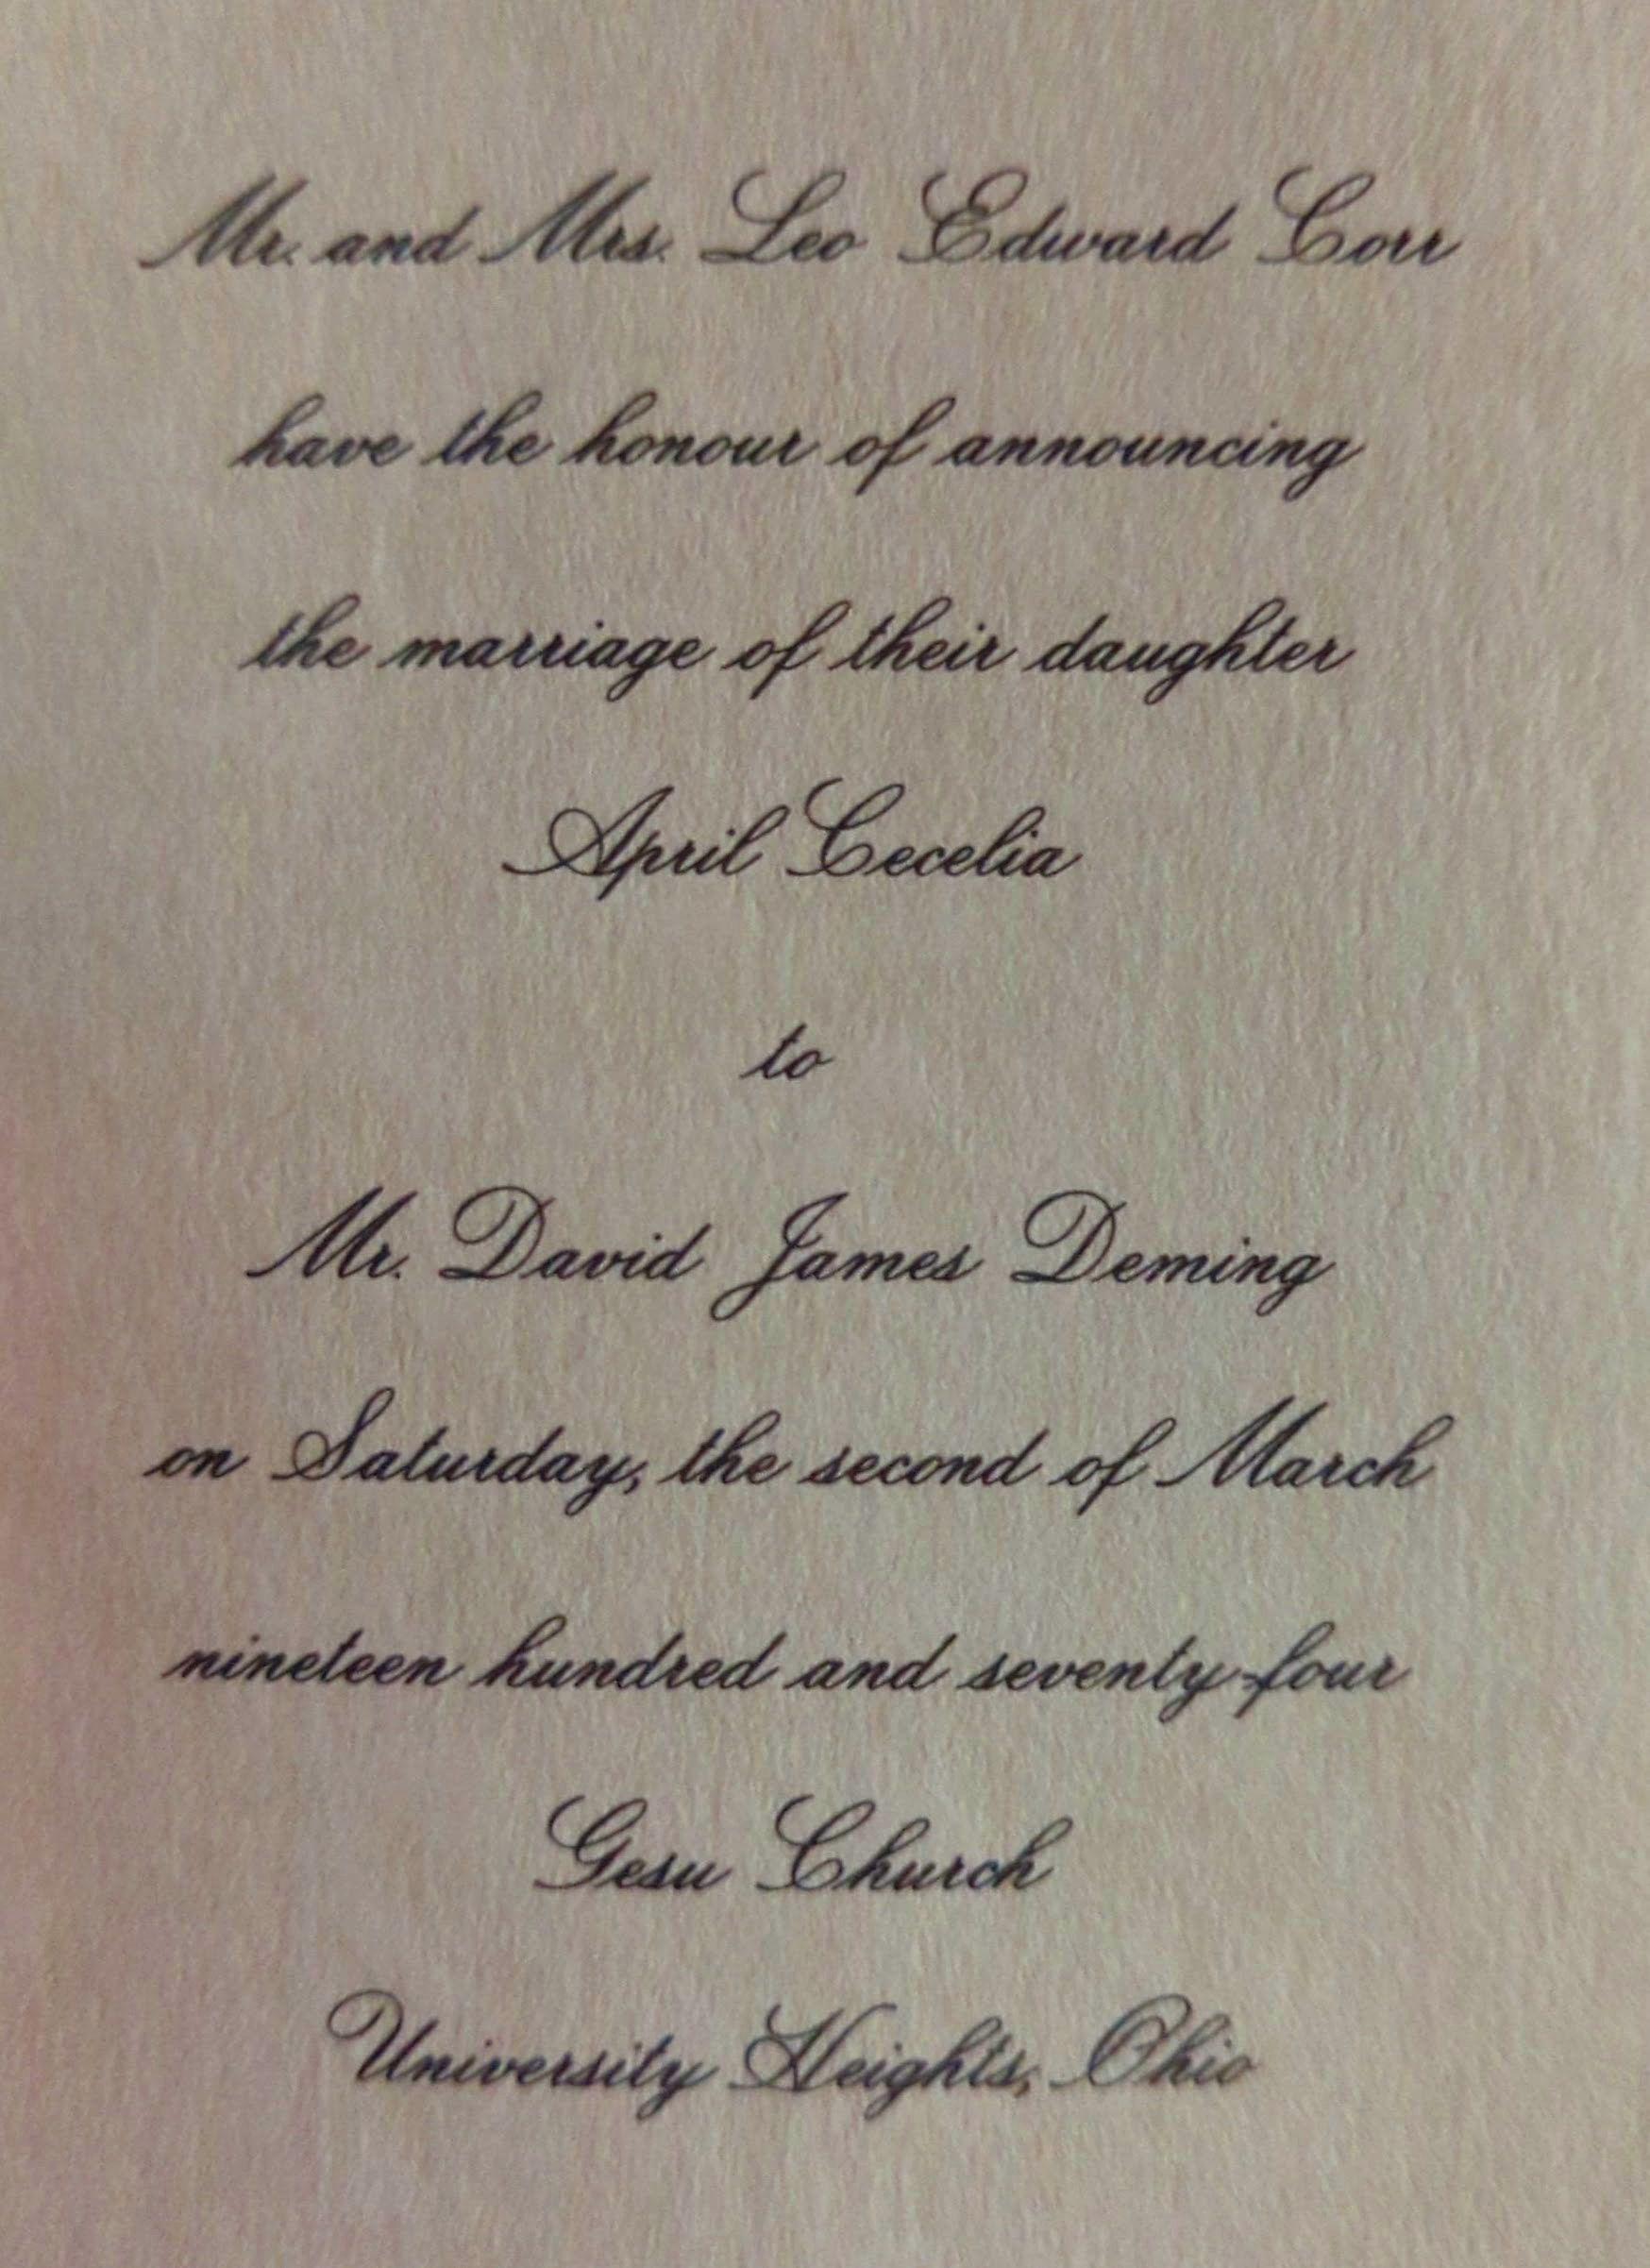 Mr. and Mrs. Leo Edward Corr
have the honour of announcing
the marriage of their daughter
April Cecelia
to
Mr. David James Deming
on Saturday, the second of March
nineteen hundred and seventy-four
Gesu Church
University Heights, Ohio